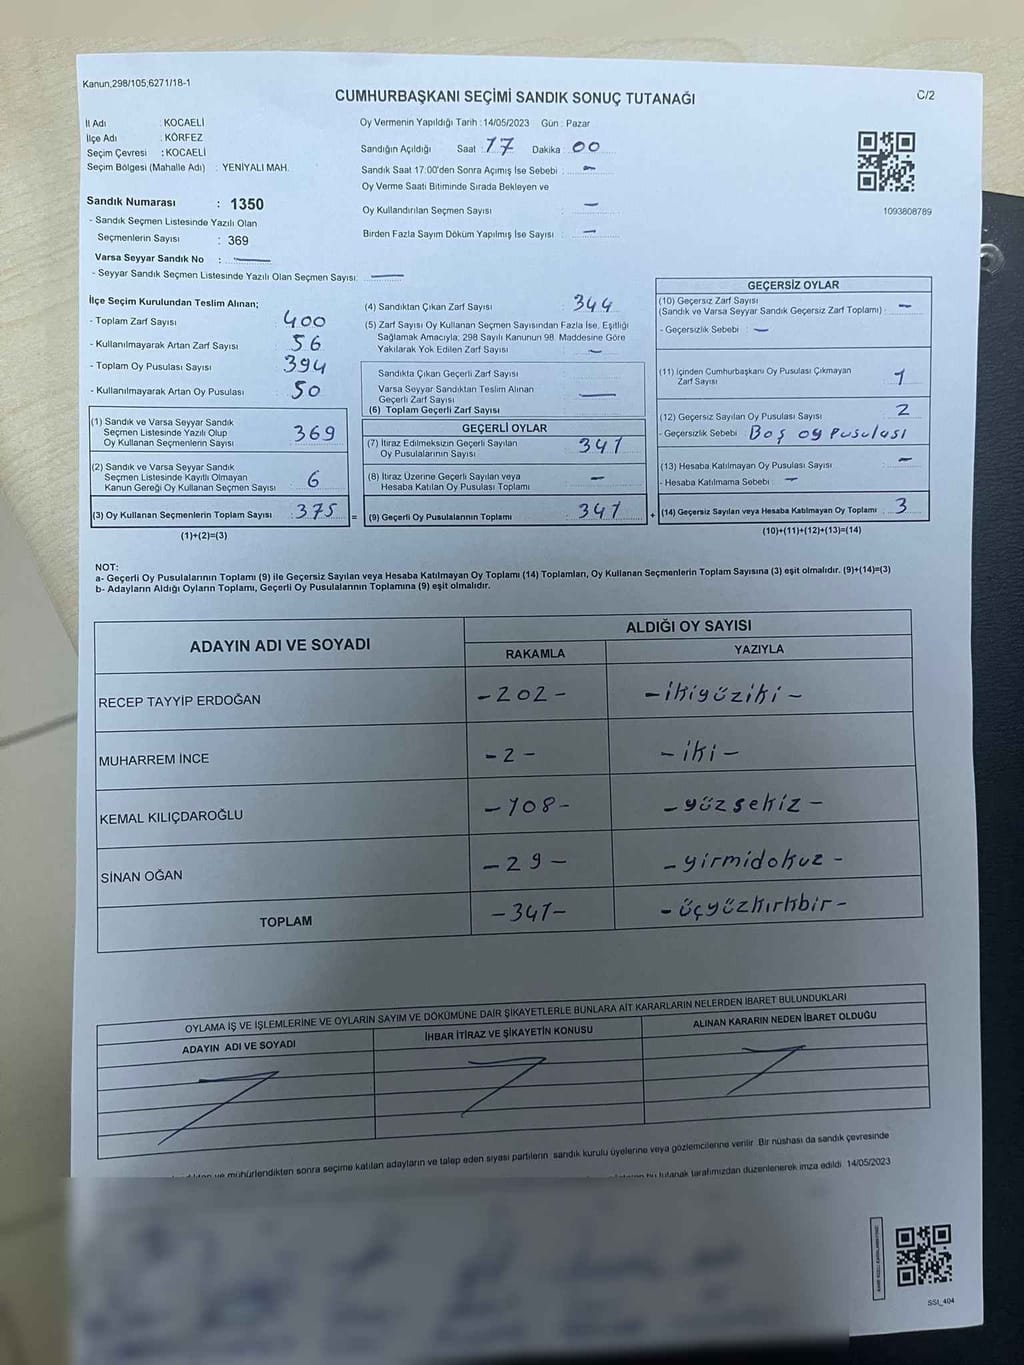 Kanun,298/105,6271/18-1
CUMHURBAŞKANI SEÇİMİ SANDIK SONUÇ TUTANAĞI
C/2
İl Adı : KOCAELİ
İlçe Adı : KÖRFEZ
Seçim Çevresi : KOCAELİ
Seçim Bölgesi (Mahalle Adı) : YENİYALI MAH.
Sandık Numarası : 1350
- Sandık Seçmen Listesinde Yazılı Olan
Seçmenlerin Sayısı : 369
Varsa Seyyar Sandık No : —
- Seyyar Sandık Seçmen Listesinde Yazılı Olan Seçmen Sayısı: —
Oy Vermenin Yapıldığı Tarih :14/05/2023 Gün : Pazar
Sandığın Açıldığı Saat : 17 Dakika : 00
Sandık Saat 17:00'den Sonra Açımış İse Sebebi : —
Oy Verme Saati Bitiminde Sırada Bekleyen ve
Oy Kullandırılan Seçmen Sayısı : —
Birden Fazla Sayım Döküm Yapılmış İse Sayısı : —
1093808789
İlçe Seçim Kurulundan Teslim Alınan;
- Toplam Zarf Sayısı : 400
- Kullanılmayarak Artan Zarf Sayısı : 56
- Toplam Oy Pusulası Sayısı : 394
- Kullanılmayarak Artan Oy Pusulası : 50
(1) Sandık ve Varsa Seyyar Sandık
Seçmen Listesinde Yazılı Olup
Oy Kullanan Seçmenlerin Sayısı : 369
(2) Sandık ve Varsa Seyyar Sandık
Seçmen Listesinde Kayıtlı Olmayan
Kanun Gereği Oy Kullanan Seçmen Sayısı : 6
(3) Oy Kullanan Seçmenlerin Toplam Sayısı : 375 =
(1)+(2)=(3)
(4) Sandıktan Çıkan Zarf Sayısı : 344
(5) Zarf Sayısı Oy Kullanan Seçmen Sayısından Fazla İse, Eşitliği
Sağlamak Amacıyla; 298 Sayılı Kanunun 98. Maddesine Göre
Yakılarak Yok Edilen Zarf Sayısı : —
Sandıkta Çıkan Geçerli Zarf Sayısı :
Varsa Seyyar Sandıktan Teslim Alınan
Geçerli Zarf Sayısı : —
(6) Toplam Geçerli Zarf Sayısı :
GEÇERLİ OYLAR
(7) İtiraz Edilmeksizin Geçerli Sayılan
Oy Pusulalarının Sayısı : 341
(8) İtiraz Üzerine Geçerli Sayılan veya
Hesaba Katılan Oy Pusulası Toplamı : —
(9) Geçerli Oy Pusulalarının Toplamı : 341 +
GEÇERSİZ OYLAR
(10) Geçersiz Zarf Sayısı
(Sandık ve Varsa Seyyar Sandık Geçersiz Zarf Toplamı) : —
- Geçersizlik Sebebi : —
(11) İçinden Cumhurbaşkanı Oy Pusulası Çıkmayan
Zarf Sayısı : 1
(12) Geçersiz Sayılan Oy Pusulası Sayısı : 2
- Geçersizlik Sebebi : Boş oy pusulası
(13) Hesaba Katılmayan Oy Pusulası Sayısı : —
- Hesaba Katılmama Sebebi : —
(14) Geçersiz Sayılan veya Hesaba Katılmayan Oy Toplamı : 3
(10)+(11)+(12)+(13)=(14)
NOT:
a- Geçerli Oy Pusulalarının Toplamı (9) ile Geçersiz Sayılan veya Hesaba Katılmayan Oy Toplamı (14) Toplamları, Oy Kullanan Seçmenlerin Toplam Sayısına (3) eşit olmalıdır. (9)+(14)=(3)
b- Adayların Aldığı Oyların Toplamı, Geçerli Oy Pusulalarının Toplamına (9) eşit olmalıdır.
ADAYIN ADI VE SOYADI
ALDIĞI OY SAYISI
RAKAMLA YAZIYLA
RECEP TAYYİP ERDOĞAN -202- -ikiyüziki-
MUHARREM İNCE -2- -iki-
KEMAL KILIÇDAROĞLU -108- -yüzsekiz-
SİNAN OĞAN -29- -yirmidokuz-
TOPLAM -341- -üçyüzkırkbir-
OYLAMA İŞ VE İŞLEMLERİNE VE OYLARIN SAYIM VE DÖKÜMÜNE DAİR ŞİKAYETLERLE BUNLARA AİT KARARLARIN NELERDEN İBARET BULUNDUKLARI
ADAYIN ADI VE SOYADI İHBAR İTİRAZ VE ŞİKAYETİN KONUSU ALINAN KARARIN NEDEN İBARET OLDUĞU
ve mühürlendikten sonra seçime katılan adayların ve talep eden siyasi partilerin sandık kurulu üyelerine veya gözlemcilerine verilir. Bir nüshası da sandık çevresinde
bu tutanak tarafımızdan düzenlenerek imza edildi. 14/05/2023
SSI_404